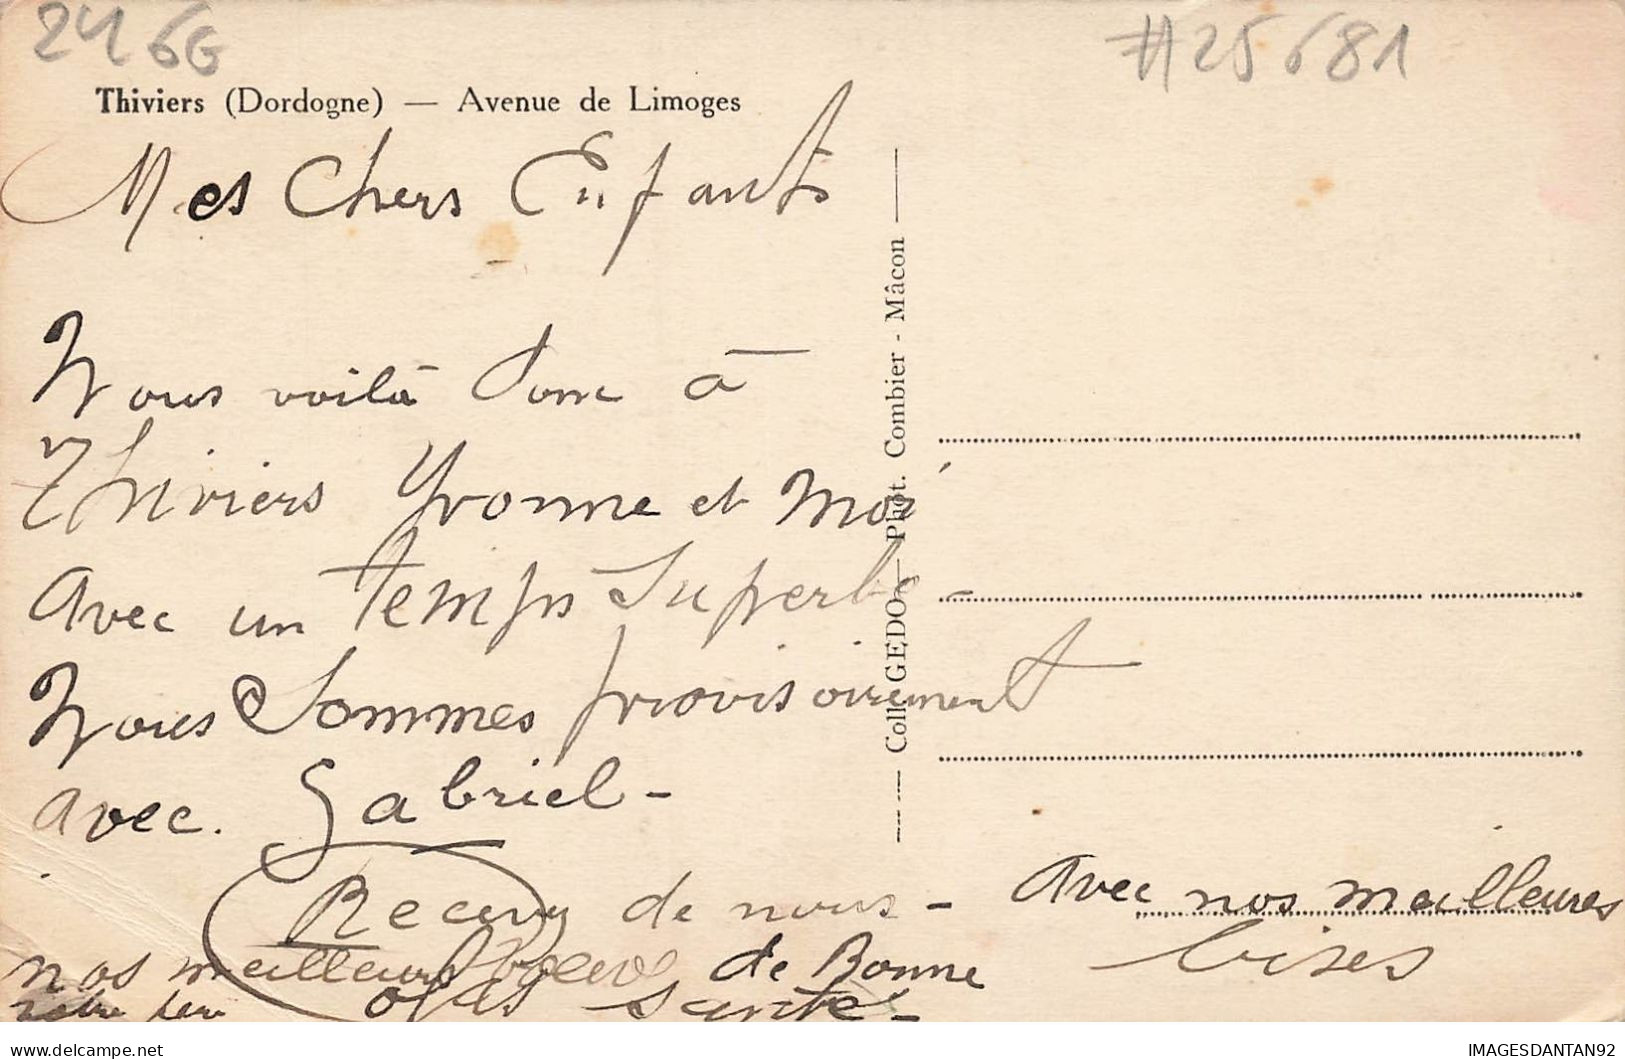 24 6G
#25681
Thiviers (Dordogne) — Avenue de Limoges
Mes Chers Enfants
Nous voilà donc à
Thiviers Yvonne et Moi
Avec un temps Superbe -
Nous Sommes provisoirement
avec. Gabriel -
Recevez de nous -
nos meilleurs de Bonne
Santé -
Avec nos meilleures
bises
Coll. GEDO — Phot. Combier - Mâcon
delcampe.net
IMAGESDANTAN92